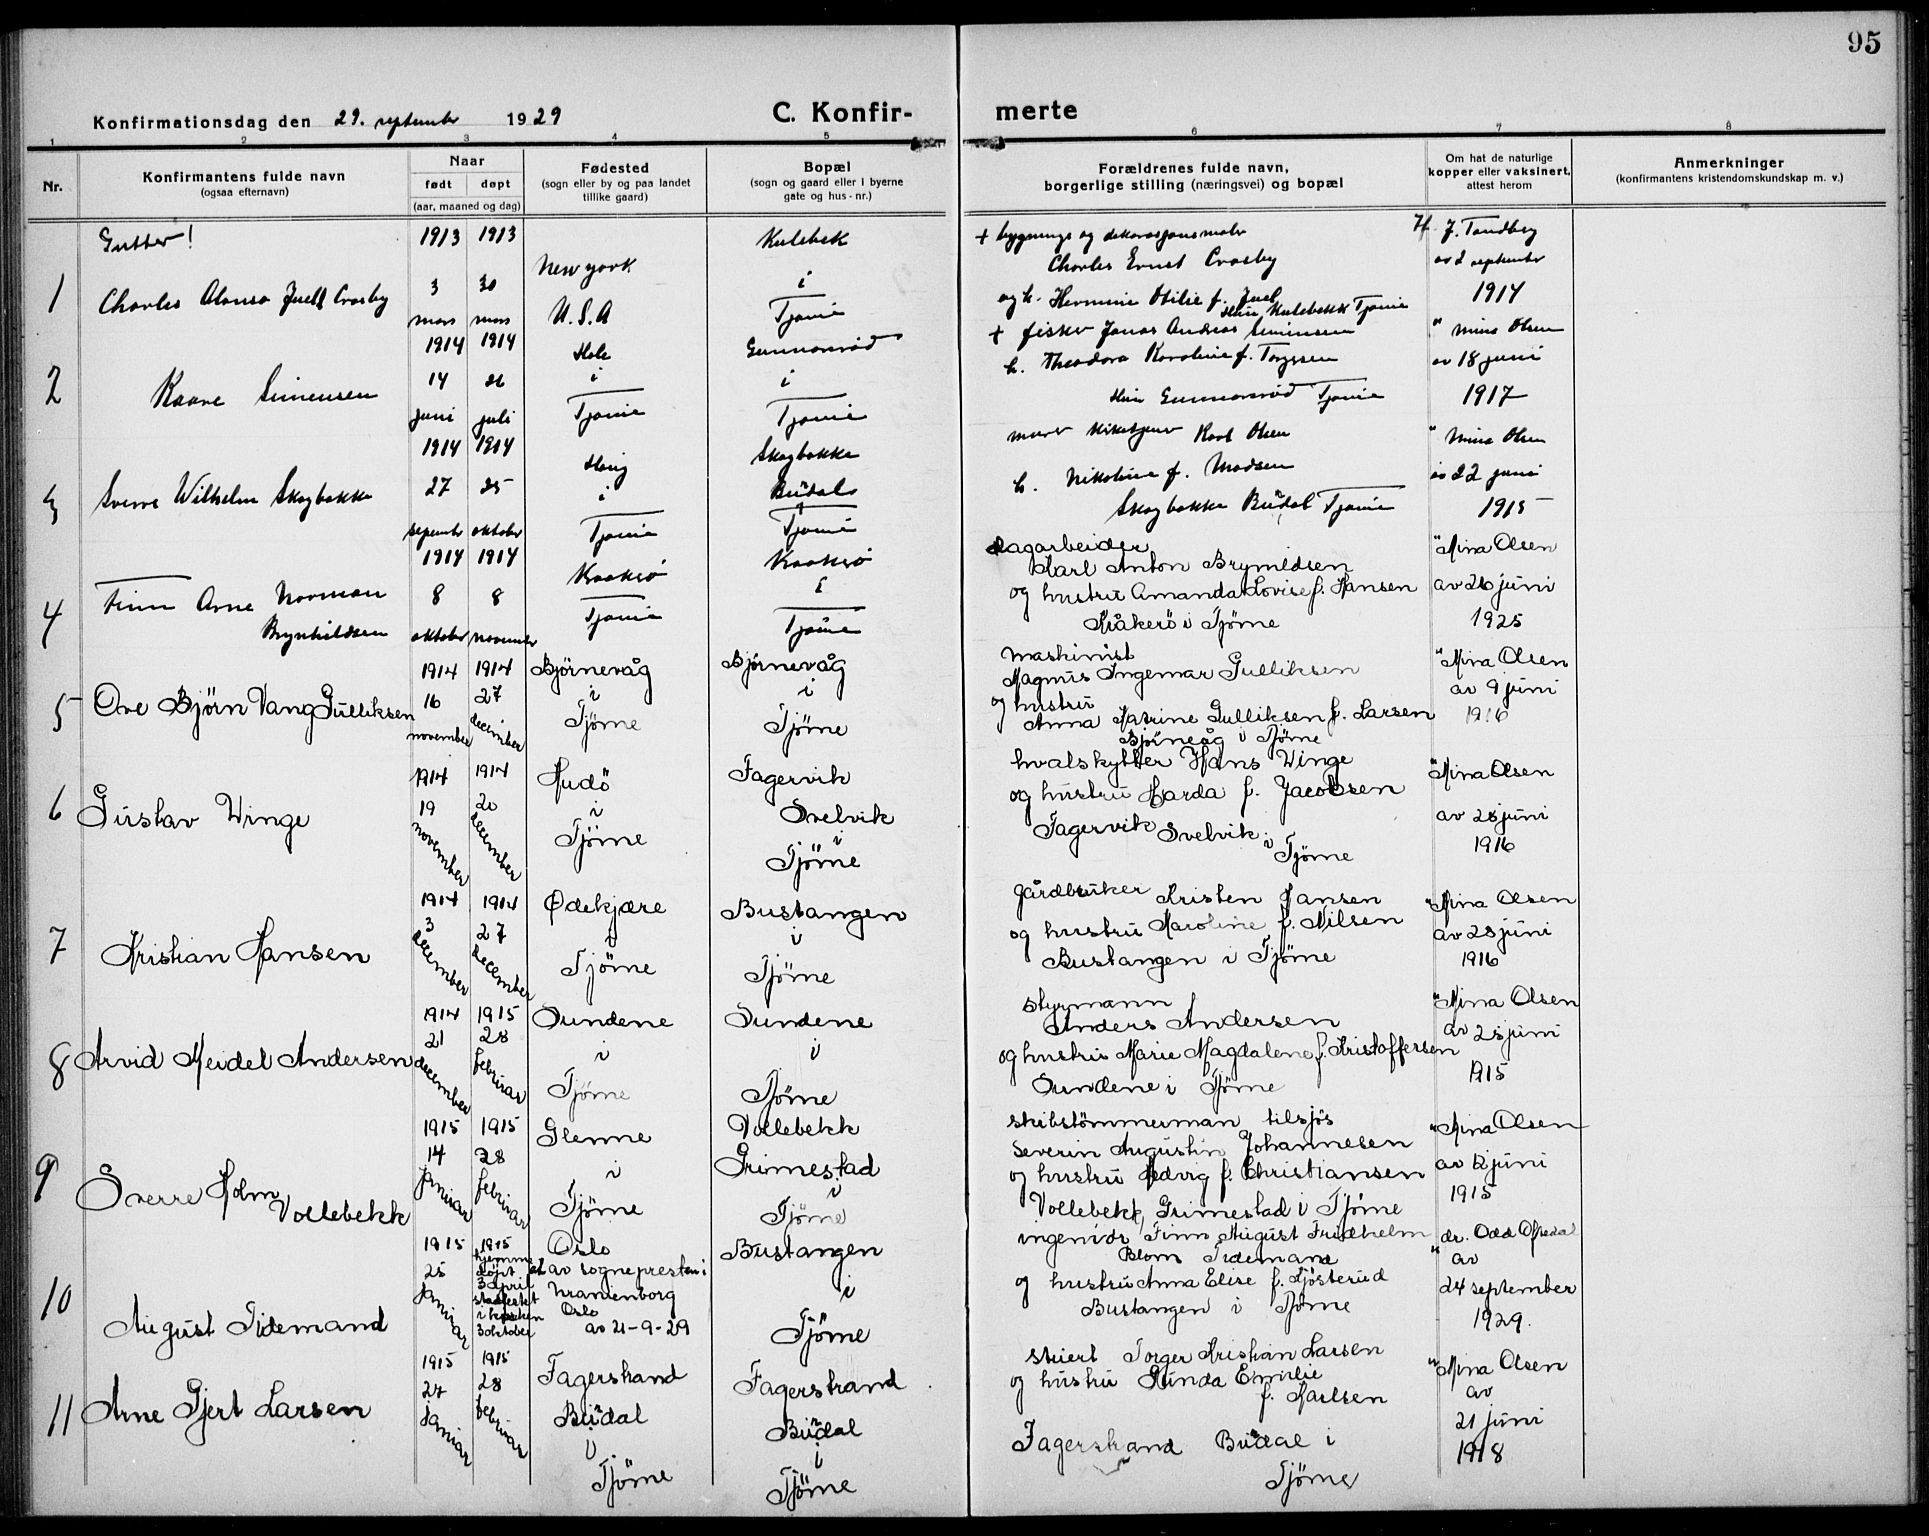 95
Konfirmationsdag den 29. september 1929
C. Konfir-
merte
1 2 3 4 5 6 7 8
Nr.
Konfirmantens fulde navn
(ogsaa efternavn)
Naar
født døpt
(aar, maaned og dag)
Fødested
(sogn eller by og paa landet
tillike gaard)
Bopæl
(sogn og gaard eller i byerne
gate og hus-nr.)
Forældrenes fulde navn,
borgerlige stilling (næringsvei) og bopæl
Om hat de naturlige
kopper eller vaksinert,
attest herom
Anmerkninger
(konfirmantens kristendomskundskap m. v.)
Gutter!
1
Charles Alonso Juell Crosby
1913 1913
3 30
mars mars
New york
U.S.A
Kulebek
i
Tjøme
+ bygnings og dekorasjonsmaler
Charles Ernst Crosby
og h. Hermine Otilie f. Juel
Hun Kulebekk Tjøme
J. Tandberg
av 2 september
1914
2
Kaare Simensen
1914 1914
14 26
juni juli
Hole
i
Tjøme
Gunnarsrød
i
Tjøme
+ fisker Jonas Andreas Simensen
h. Theodora Karoline f. Torgersen
Hun Gunnarsrød Tjøme
" Mina Olsen
av 18 juni
1917
3
Sverre Wilhelm Skogbakke
1914 1914
27 25
september oktober
i
Tjøme
Skogbakke
Budal
i
Tjøme
murer Karl Olsen
h. Nikoline f. Madsen
Skogbakke Budal Tjøme
" Mina Olsen
av 22 juni
1915
4
Finn Arne Norman
Brynhildsen
1914 1914
8 8
oktober november
Kaakerø
Tjøme
Kaakerø
i
Tjøme
dagarbeider
Karl Anton Brynildsen
og hustru Amanda Lovise f. Hansen
Kråkerö i Tjöme
" Mina Olsen
av 26 juni
1925
5
Ove Björn Vang Gulliksen
1914 1914
16 27
november december
Björnevåg
i
Tjöme
Björnevåg
i
Tjöme
maskinist
Magnus Ingemar Gulliksen
og hustru
Anna Katrine Gulliksen f. Larsen
Björneåg i Tjöme
" Mina Olsen
av 9 juni
1916
6
Gustav Winge
1914 1914
19 20
november december
Hudö
i
Tjöme
Fagervik
Svelvik
i
Tjöme
hvalskytter Hans Winge
og hustru Harda f. Jacobsen
Fagervik Svelvik i
Tjöme
" Mina Olsen
av 28 juni
1916
7
Kristian Hansen
1914 1914
3 27
december december
Ødekjære
i
Tjöme
Bustangen
i
Tjöme
gårdbruker Kristen Hansen
og hustru Karoline f. Nilsen
Bustangen i Tjöme
" Mina Olsen
av 28 juni
1916
8
Arvid Meidel Andersen
1914 1915
21 28
december februar
Sundene
i
Tjöme
Sundene
i
Tjöme
styrmann
Anders Andersen
og hustru Marie Magdalene f. Kristoffersen
Sundene i Tjöme
" Mina Olsen
av 28 juni
1915
9
Sverre Holm
Vollebekk
1915 1915
14 28
januar februar
Glenne
i
Tjöme
Vollebekk
Grimestad
i
Tjöme
skibstömmerman tilsjös
Severin Augustin Johannesen
og hustru Hedvig f. Christiansen
Vollebekk, Grimestad i Tjöme
" Mina Olsen
av 12 juni
1915
10
August Tidemand
1915 1915
25
januar
hjemme
döpt
3 april
stadfestet
i kirken
3 oktober
Oslo
at av sogneprest i
Uranienborg
Oslo
av 21-9-29
Bustangen
i
Tjöme
ingeniör Finn August Fridthelm
Blom Tidemand
og hustru Anna Elise f. Sjösterud
Bustangen i Tjöme
" dr. Odd Ofsedal
av
24 september
1929.
11
Arne Gjert Larsen
1915 1915
27 28
januar februar
Fagerstrand
Budal
i
Tjöme
Fagerstrand
Budal
i
Tjöme
stuert Torger Kristian Larsen
og hustru Gunda Emilie
f. Karlsen
Fagerstrand Budal i
Tjöme
" Mina Olsen
av
21 juni
1918